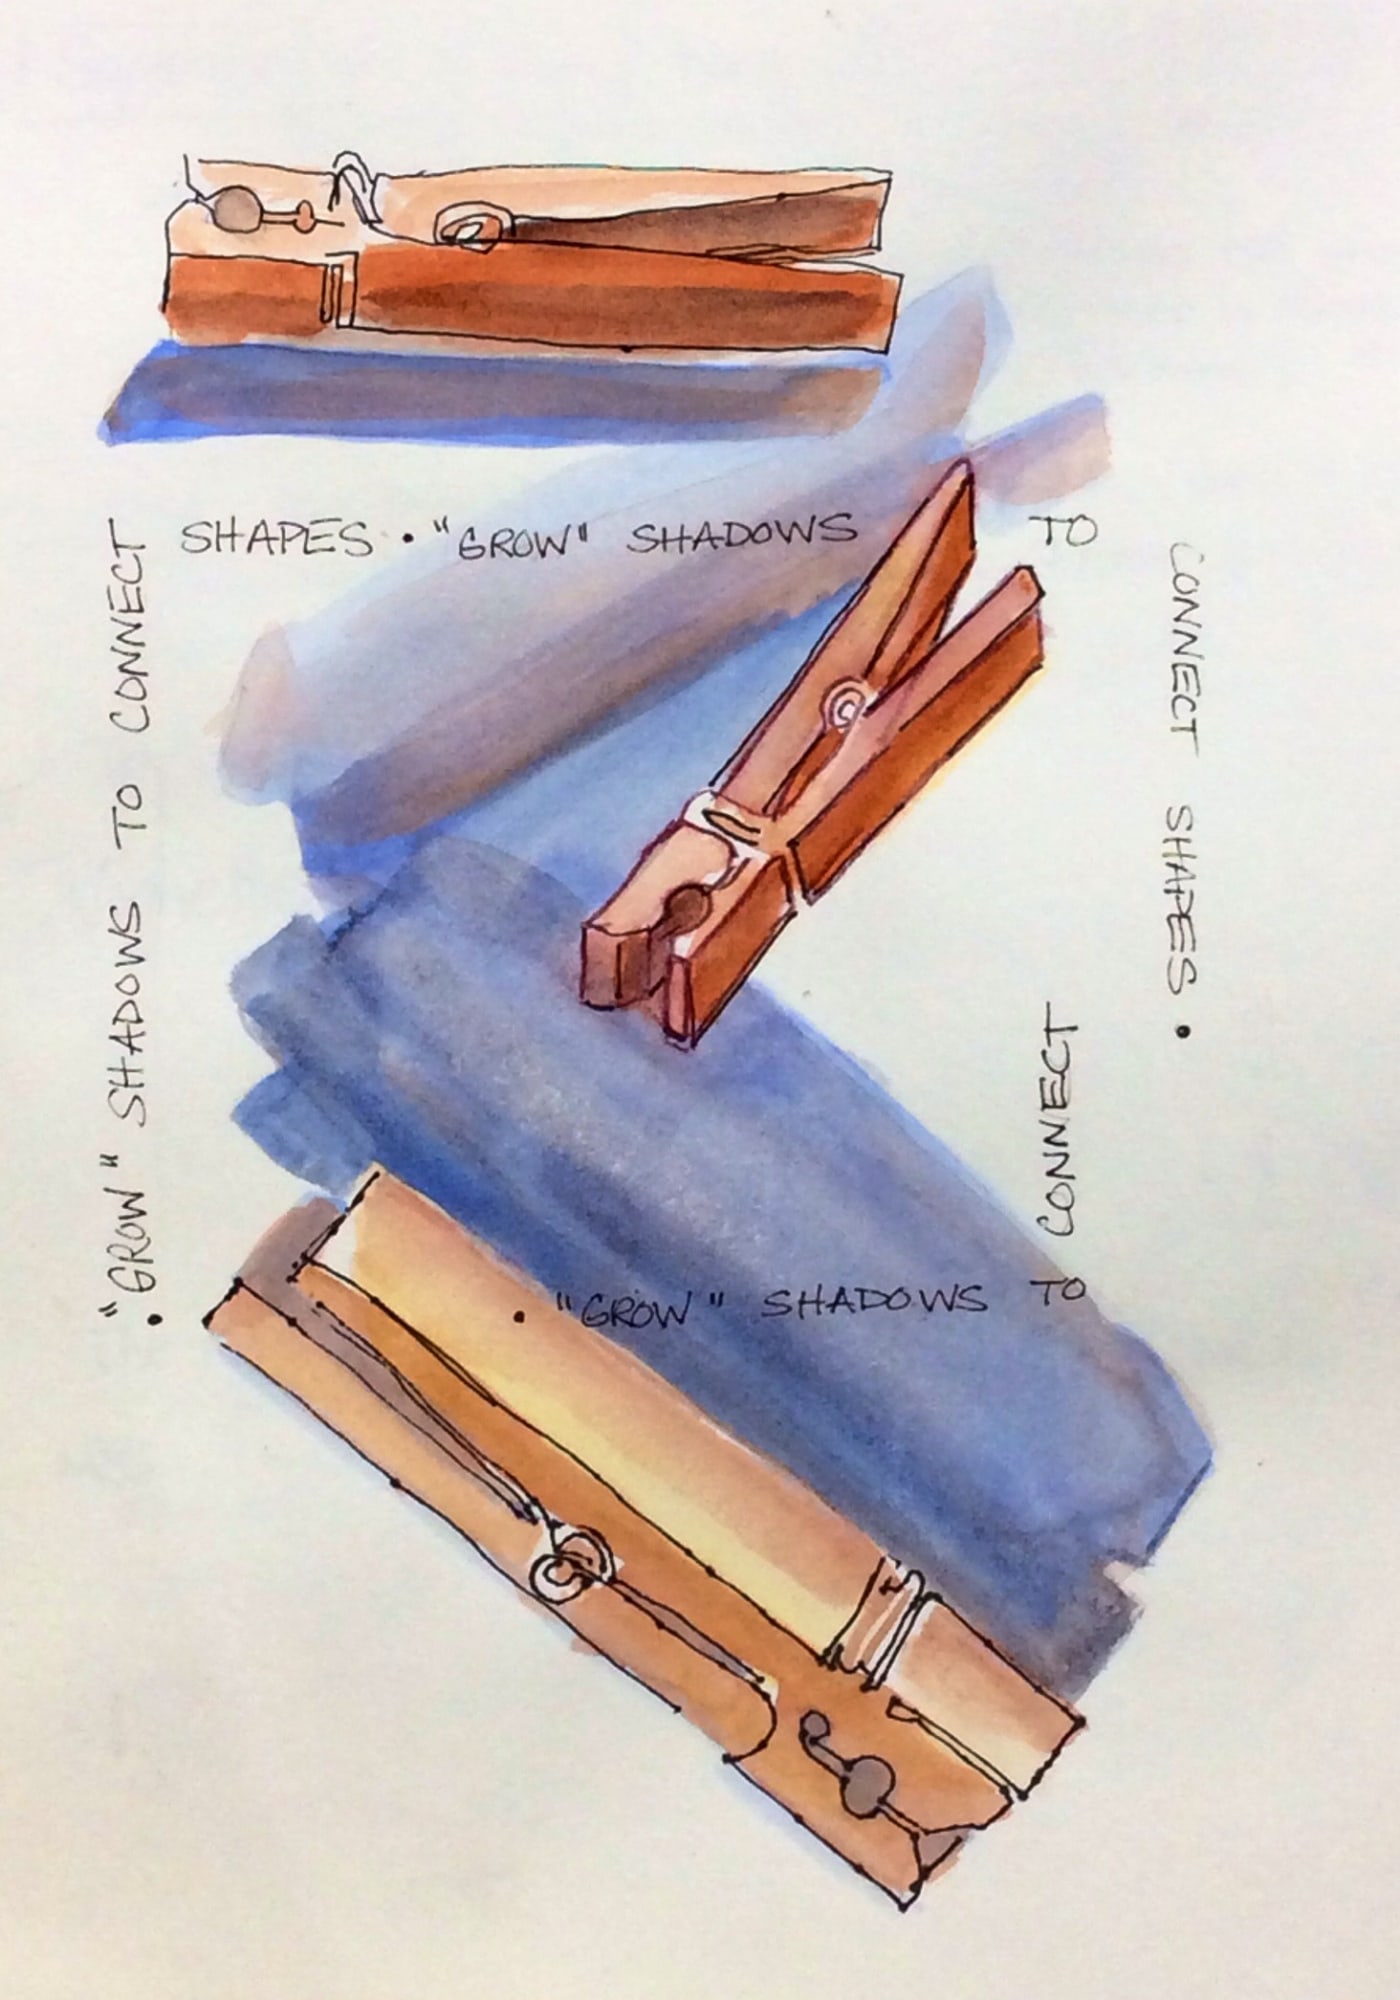 SHAPES • "GROW" SHADOWS TO
CONNECT SHAPES •
• "GROW" SHADOWS TO
CONNECT
• "GROW" SHADOWS TO CONNECT